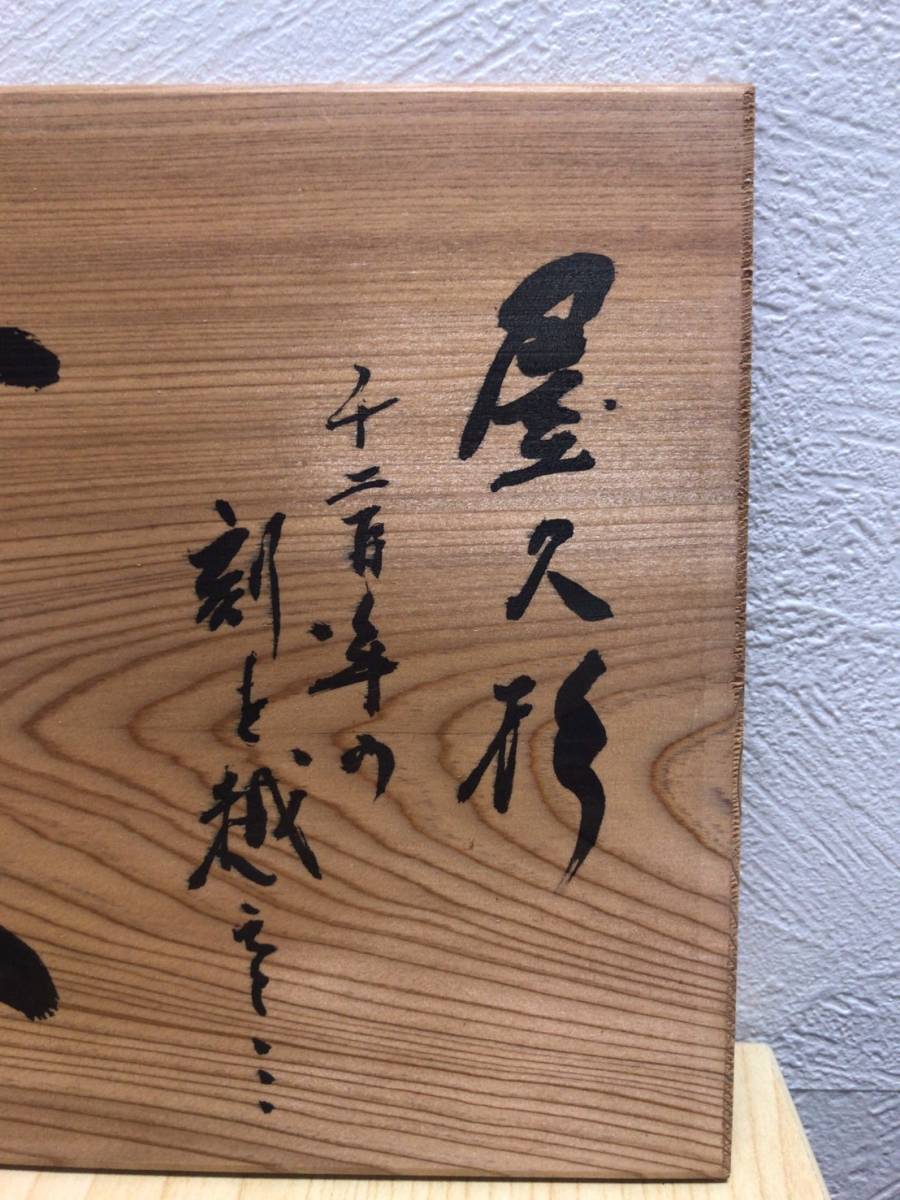 屋久杉
千二百年の
刻を越えて…